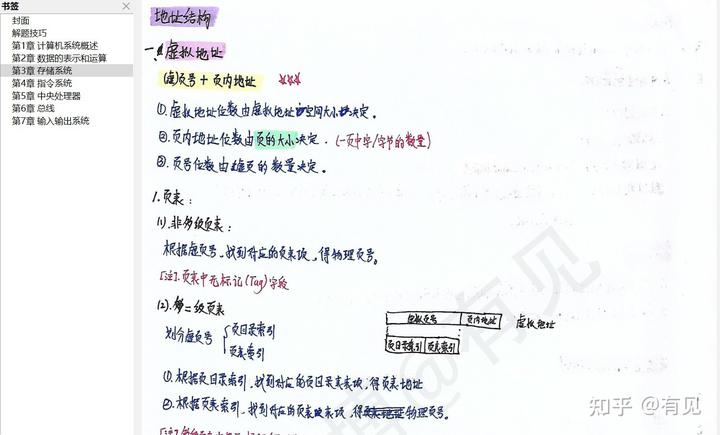 书签
封面
解题技巧
第1章 计算机系统概述
第2章 数据的表示和运算
第3章 存储系统
第4章 指令系统
第5章 中央处理器
第6章 总线
第7章 输入输出系统
地址结构
一、虚拟地址
(虚)页号 + 页内地址 ☆☆☆
①. 虚拟地址位数由虚拟地址空间大小决定。
②. 页内地址位数由页的大小决定. (一页中字/字节的数量)
③. 页号位数由虚页的数量决定。
1. 页表:
(1). 非多级页表:
根据虚页号, 找到对应的页表项, 得物理页号。
[注]. 页表中无标记(Tag)字段
(2). 二级页表
虚拟页号 页内地址 虚拟地址
划分虚页号 页目录索引
页表索引
页目录索引 页表索引
①. 根据页目录索引, 找到对应的页目录表项, 得页表地址
②. 根据页表索引, 找到对应的页表项, 得物理页号。
博@有见
知乎 @有见